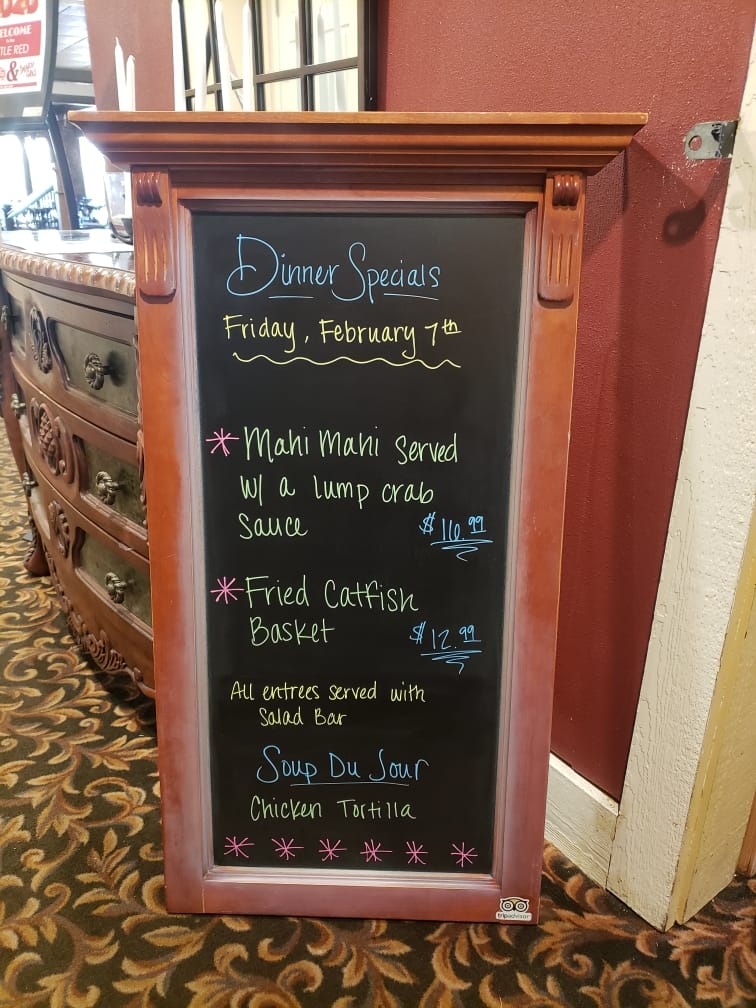 ELCOME
TLE RED
&
Dinner Specials
Friday, February 7th
* Mahi Mahi Served
w/ a lump crab
Sauce $16.99
* Fried Catfish
Basket $12.99
All entrees served with
Salad Bar
Soup Du Jour
Chicken Tortilla
* * * * * *
tripadvisor